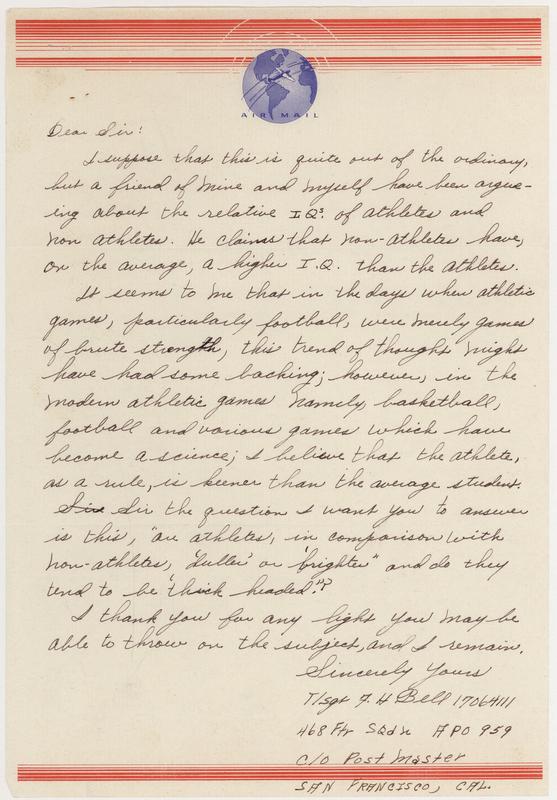 AIR MAIL
Dear Sir:
I suppose that this is quite out of the ordinary,
but a friend of mine and myself have been argue-
ing about the relative I.Qs. of athletes and
non athletes. He claims that non-athletes have,
on the average, a higher I.Q. than the athletes.
It seems to me that in the days when athletic
games, particularly football, were merely games
of brute strength, this trend of thought might
have had some backing; however, in the
modern athletic games namely, basketball,
football and various games which have
become a science; I believe that the athlete,
as a rule, is keener than the average student.
Sir Sir the question I want you to answer
is this, "are athletes, in comparison with
non-athletes, 'duller' or 'brighter" and do they
tend to be 'thick headed."?
I thank you for any light you may be
able to throw on the subject, and I remain.
Sincerely Yours
T/sgt F. H Bell 17064111
468 Ftr Sqdn APO 959
c/o Post Master
SAN FRANCISCO, CAL.